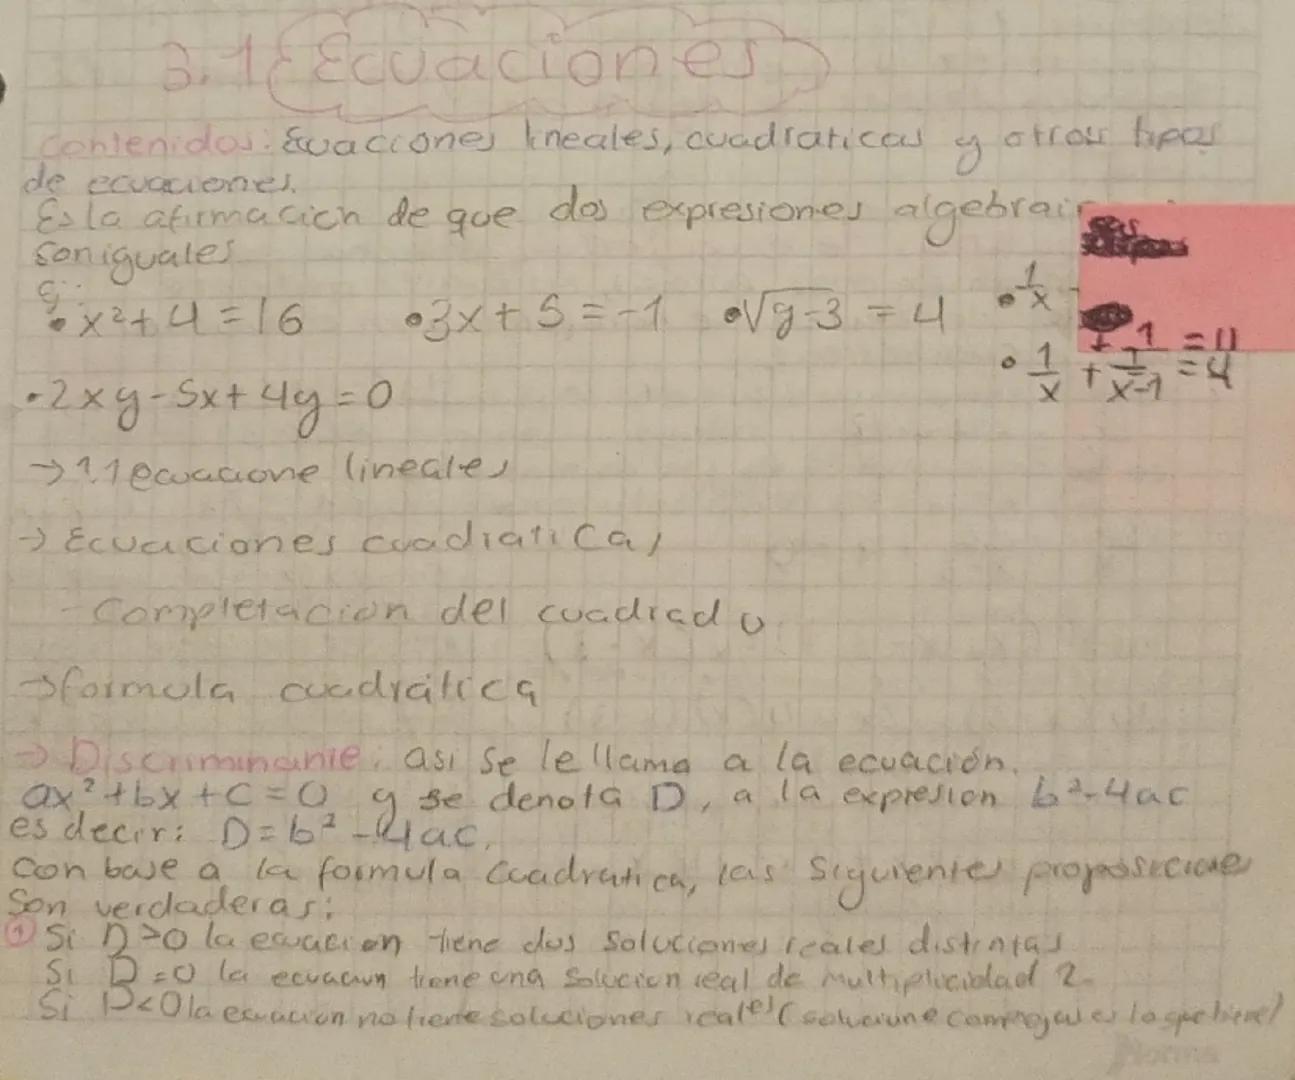 3.1 Ecuaciones
Contenidos: Ecuaciones lineales, cuadraticas y otros tipos
de ecuaciones.
Es la afirmación de que dos expresiones algebraic
son iguales
Ej:
• x² + 4 = 16 • 3x + 5 = -1 • √y-3 = 4 • 1/x
+ 1 = 4
• 1/x + 1/x-1 = 4
• 2xy - 5x + 4y = 0
→ 1.1 ecuacione lineales
→ Ecuaciones cuadraticas
- Completacion del cuadrado
→ formula cuadrática
→ Discriminante: asi se le llama a la ecuación.
ax² + bx + c = 0 y se denota D, a la expresion b² - 4ac
es decir: D = b² - 4ac.
Con base a la formula cuadratica, las siguientes
Son verdaderas:
① Si D > 0 la ecuacion tiene dos soluciones reales distintas
Si D = 0 la ecuacion tiene una solucion real de multiplicidad 2.
Si D < 0 la ecuacion no tiene soluciones reales ( es lo que tiene)
Norma